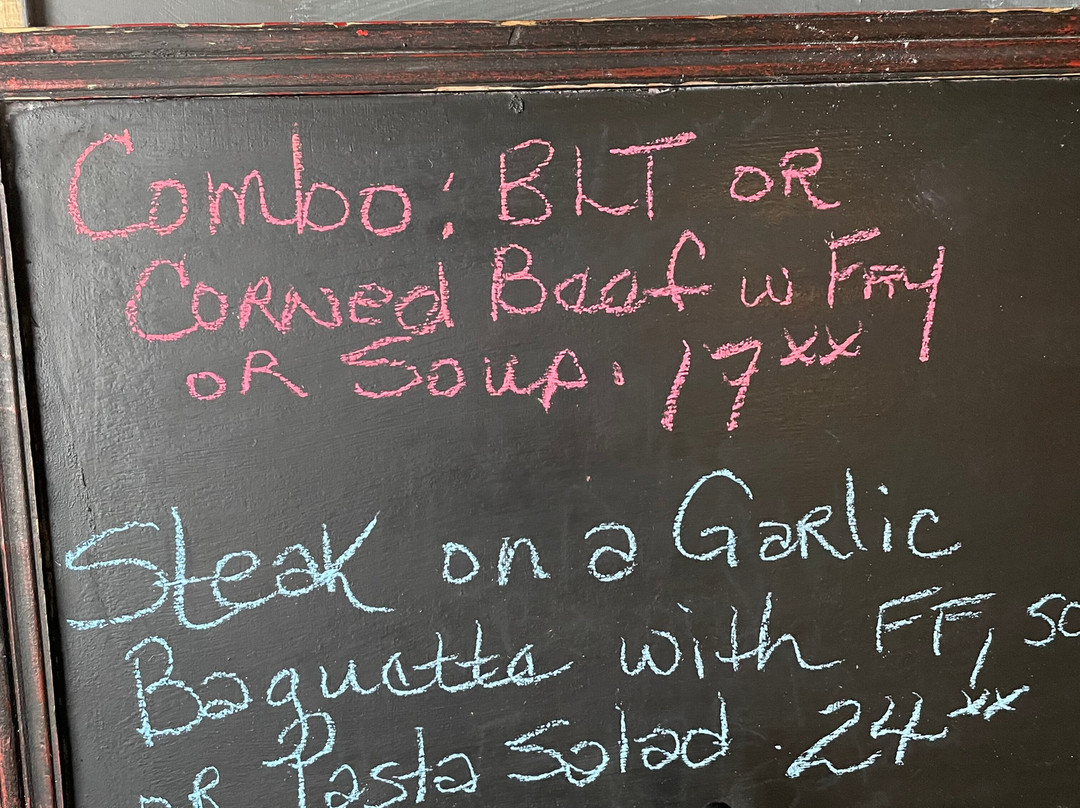 Combo: BLT OR
CORNed Beef w Fry
OR Soup. 17xx
Steak on a GaRlic
Baguette with FF, so
OR Pasta Salad. 24xx